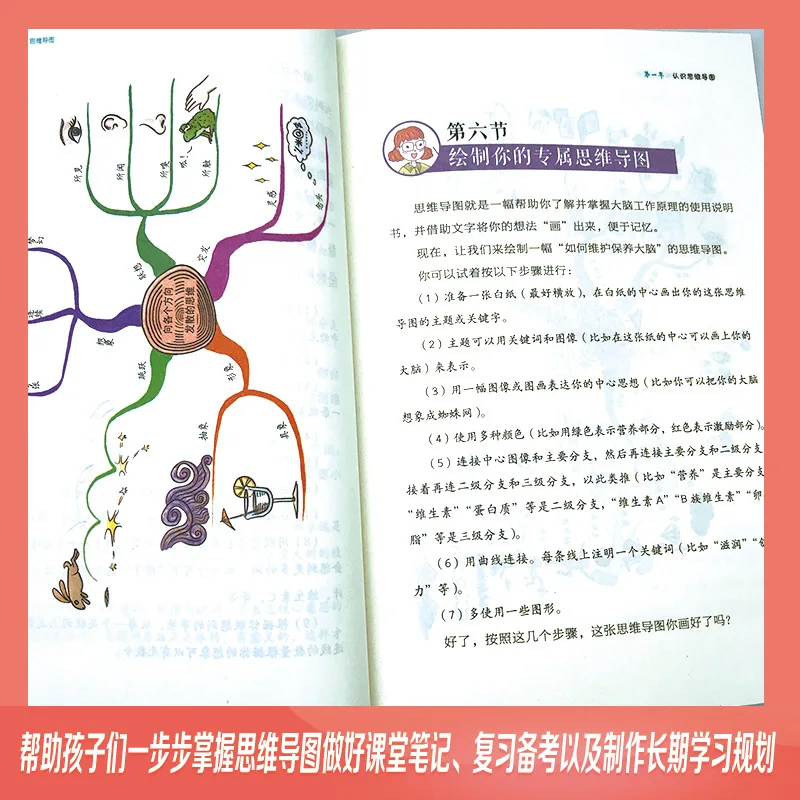 思维导图
所见
所闻
所嗅
呱！
所触
灵感
念头
突发
向各个方向
发散的思维
梦幻
想象
跳跃
抽象
具象
第一章 认识思维导图
第六节
绘制你的专属思维导图
思维导图就是一幅帮助你了解并掌握大脑工作原理的使用说明
书，并借助文字将你的想法“画”出来，便于记忆。
现在，让我们来绘制一幅“如何维护保养大脑”的思维导图。
你可以试着按以下步骤进行：
（1）准备一张白纸（最好横放），在白纸的中心画出你的这张思维
导图的主题或关键字。
（2）主题可以用关键词和图像（比如在这张纸的中心可以画上你的
大脑）来表示。
（3）用一幅图像或图画表达你的中心思想（比如你可以把你的大脑
想象成蜘蛛网）。
（4）使用多种颜色（比如用绿色表示营养部分，红色表示激励部分）。
（5）连接中心图像和主要分支，然后再连接主要分支和二级分支
接着再连二级分支和三级分支，以此类推（比如“营养”是主要分支
“维生素”“蛋白质”等是二级分支，“维生素A”“B族维生素”“卵
脂”等是三级分支）。
（6）用曲线连接。每条线上注明一个关键词（比如“滋润”“
力”等）。
（7）多使用一些图形。
好了，按照这几个步骤，这张思维导图你画好了吗？
帮助孩子们一步步掌握思维导图做好课堂笔记、复习备考以及制作长期学习规划